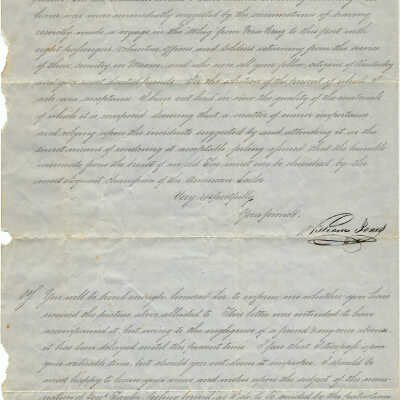 here was immediately suggested by the circumstance of having
recently made a voyage in the string from Vera Cruz to this port with
eight passengers, volunteer officers and soldiers returning from the service
of their country in Mexico, and who were all your fellow citizens of Kentucky
and your most devoted friends. In the selection of the present of which I
ask your acceptance I have not had in view the quality of the materials
of which it is composed deeming that a matter of minor importance
and relying upon the incidents suggested by and attending it as the
surest means of rendering it acceptable feeling assured that the humble
memento from the hands of an old Tar must not be disdained by the
most eloquent champion of the American Sailor
Very respectfully
Your friend
William Jones
PS You will be kind enough honored Sir to inform me whether you have
received the picture above alluded to. This letter was intended to have
accompanied it, but owing to the negligence of a friend & my own absence
it has been delayed until the present time. I fear that I trespass upon
your valuable time, but should you not deem it improper, I should be
most happy to learn your views and wishes upon the subject of the nomi-